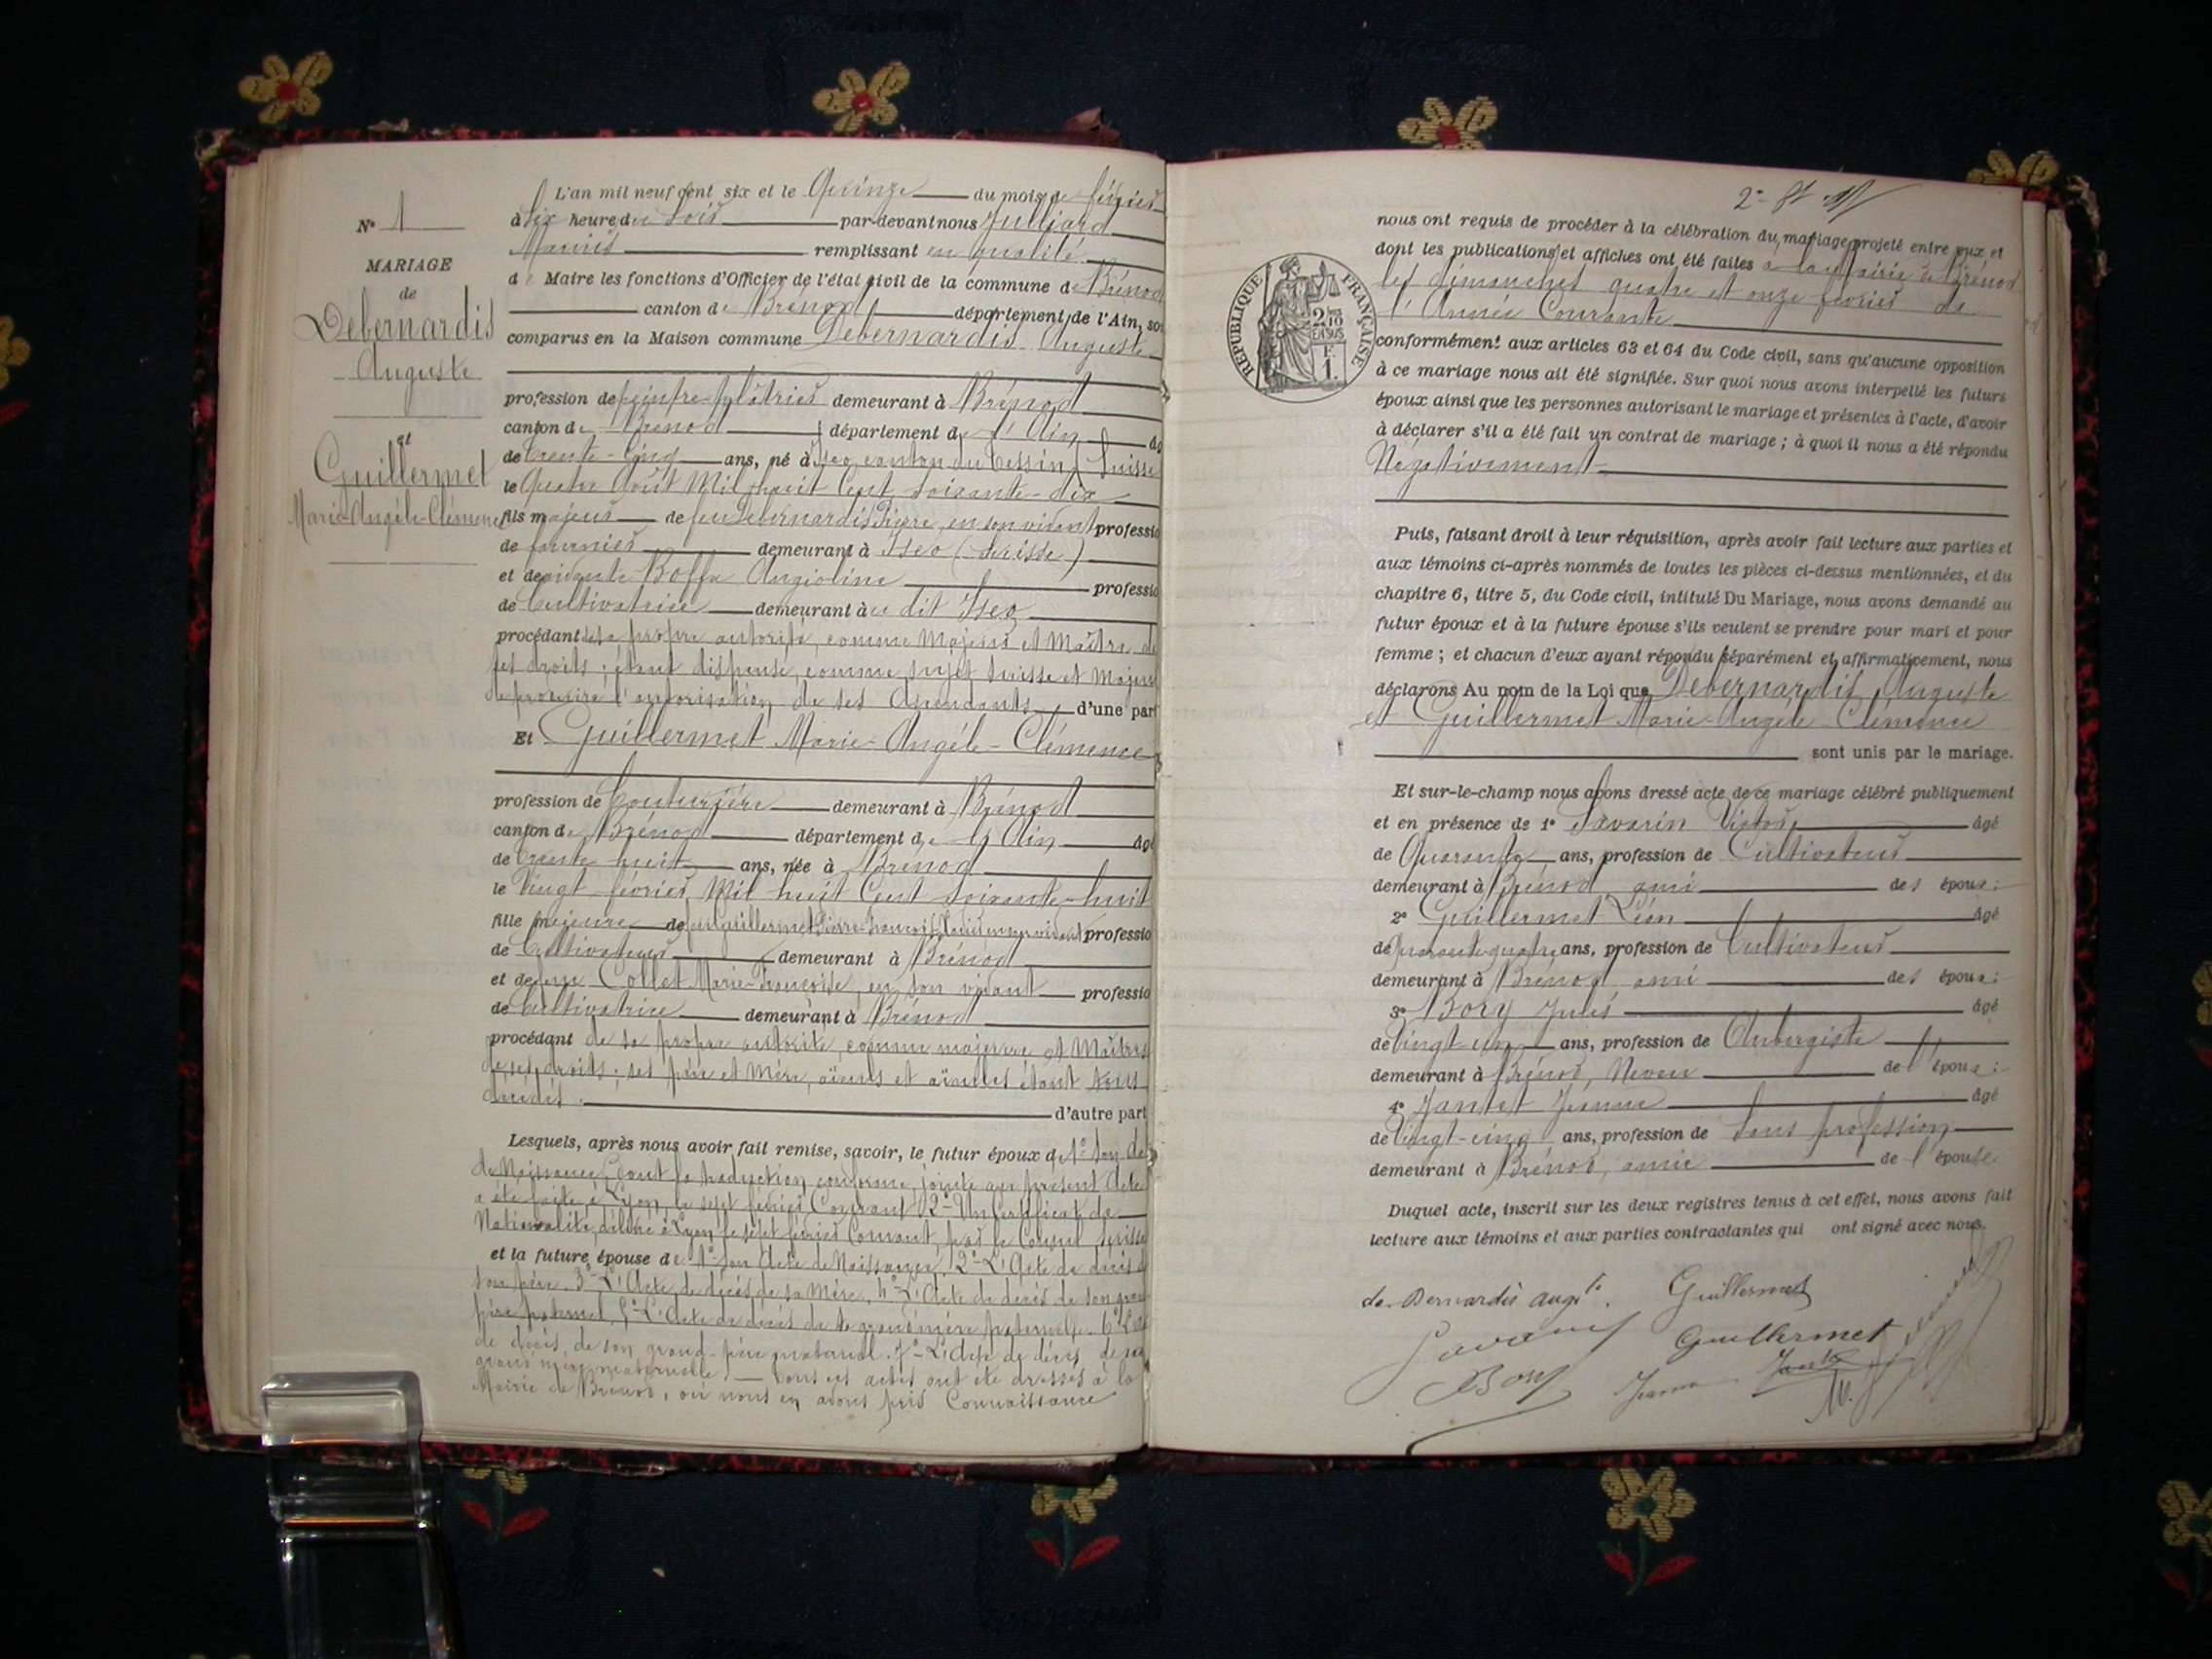 N° 1
MARIAGE
de
Debernardis
Auguste
et
Guillermet
Marie-Angèle-Clémence
L'an mil neuf cent six et le Quinze du mois de février
à Six heure du soir par-devant nous Julliard
Marius remplissant en qualité
de Maire les fonctions d'Officier de l'état civil de la commune de Brénod
canton de Brénod département de l'Ain, so
comparus en la Maison commune Debernardis Auguste
profession de peintre-plâtrier demeurant à Brénod
canton de Brénod département de l'Ain âg
de trente-cinq ans, né à Iseo, canton du Tessin, Suisse
le Quatre Août Mil huit Cent soixante-dix
fils majeur de feu Debernardis Pierre, en son vivant professio
de demeurant à Iséo (Suisse)
et de vivante Boffa Angioline professio
de Cultivatrice demeurant à ce dit Iseo
procédant de sa propre autorité, comme Majeur et Maître de
ses droits ; étant dispensé, comme sujet suisse et Majeur
de produire l'autorisation de ses Ascendants d'une part
Et Guillermet Marie-Angèle-Clémence
profession de Couturière demeurant à Brénod
canton de Brénod département de l'Ain âgé
de trente huit ans, née à Brénod
le Vingt février Mil huit Cent soixante-huit
fille majeure de feu Guillermet Pierre-François en son vivant professio
de Cultivateur demeurant à Brénod
et de feue Collet Marie-Françoise, en son vivant professio
de Cultivatrice demeurant à Brénod
procédant de sa propre autorité, comme majeure et Maîtres
de ses droits ; ses père et Mère, aïeuls et aïeules étant tous
décédés. d'autre part
Lesquels, après nous avoir fait remise, savoir, le futur époux de 1° Son
de Naissance, dont la traduction conforme, jointe au présent Acte
a été faite à Lyon, le sept février Courant 2°- Un Certificat de
Nationalité, délivré à Lyon le sept février Courant, par le Consul suisse
et la future épouse de 1° son Acte de Naissance, 2°- L'Acte de décès d
son père, 3°- L'Acte de décès de sa Mère, 4°- L'Acte de décès de son gran
père paternel, 5°- L'Acte de décès de sa grand'mère paternelle. 6°
de décès de son grand-père maternel. 7°- L'Acte de décès de sa
grand'mère maternelle.- Tous ces actes ont été dressés à la
Mairie de Brénod, où nous en avons pris Connaissance
nous ont requis de procéder à la célébration du mariage projeté entre eux et
dont les publications et affiches ont été faites à la Mairie de Brénod
les dimanches quatre et onze février de
l'Année Courante
RÉPUBLIQUE FRANÇAISE
conformément aux articles 63 et 64 du Code civil, sans qu'aucune opposition
à ce mariage nous ait été signifiée. Sur quoi nous avons interpellé les futurs
époux ainsi que les personnes autorisant le mariage et présentes à l'acte, d'avoir
à déclarer s'il a été fait un contrat de mariage ; à quoi il nous a été répondu
Négativement
Puis, faisant droit à leur réquisition, après avoir fait lecture aux parties et
aux témoins ci-après nommés de toutes les pièces ci-dessus mentionnées, et du
chapitre 6, titre 5, du Code civil, intitulé Du Mariage, nous avons demandé au
futur époux et à la future épouse s'ils veulent se prendre pour mari et pour
femme ; et chacun d'eux ayant répondu séparément et affirmativement, nous
déclarons Au nom de la Loi que Debernardis Auguste
et Guillermet Marie-Angèle Clémence
sont unis par le mariage.
Et sur-le-champ nous avons dressé acte de ce mariage célébré publiquement
et en présence de 1° Savarin Victor âgé
de Quarante ans, profession de Cultivateur
demeurant à Brénod, ami des époux ;
2° Guillermet Léon âgé
de quarante quatre ans, profession de Cultivateur
demeurant à Brénod, ami des époux ;
3° Bory Jules âgé
de Vingt-un ans, profession de Aubergiste
demeurant à Brénod, Neveu de l'épous ;
4° Jantet Jeanne âgé
de Vingt-cinq ans, profession de Sans profession
demeurant à Brénod, amie de l'épouse
Duquel acte, inscrit sur les deux registres tenus à cet effet, nous avons fait
lecture aux témoins et aux parties contractantes qui ont signé avec nous.
de Bernardis Augte. Guillermet
Savarin Guillermet
Bory Jeanne Jantet